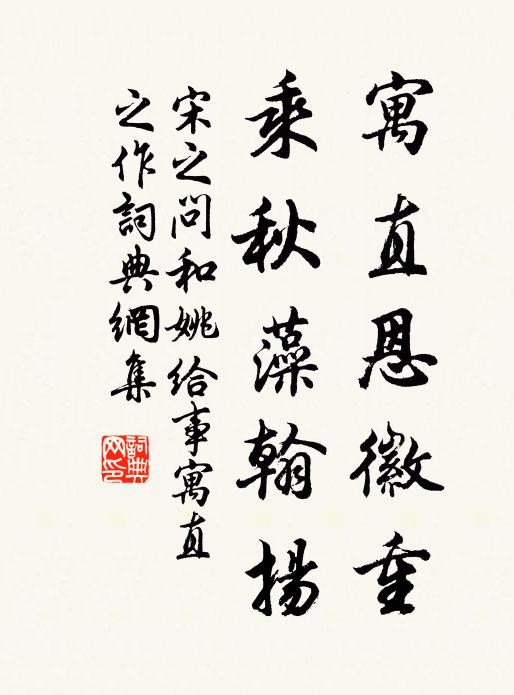 寓直恩徽重
乘秋藻翰揚
宋之問和姚給事寓直
之作詞典網集
詞典網印